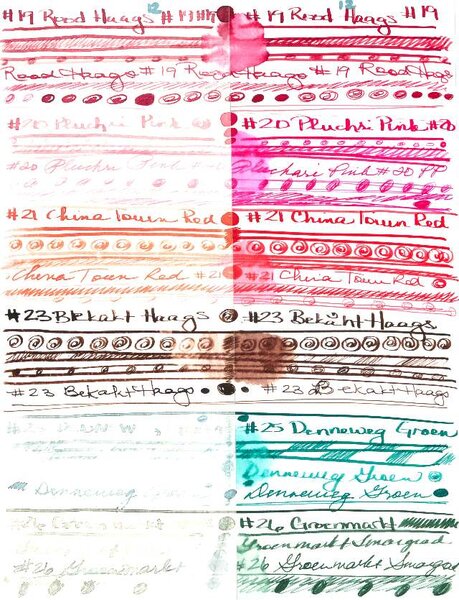 12 12
#19 Rood Haags #19 #19 Rood Haags #19
Rood Haags #19 Rood Haags #19 Rood Hags
#20 Pluchri Pink #20 Pluchri Pink #20
#20 Pluchari Pink #20 Pluchari Pink #20 PP
#21 China Town Red #21 China Town Red
China Town Red #21 #21 China Town Red
#23 Bekakt Haags #23 Bekakt Haags
#23 Bekakt Haags #23 Bekakt Haags
#25 Denneweg Groen
Denneweg Groen
Denneweg Denneweg Groen
#26 #26 Groenmarkt
Groenmarkt Smaragd
#26 Groenmarkt #26 Groenmarkt Smaragd